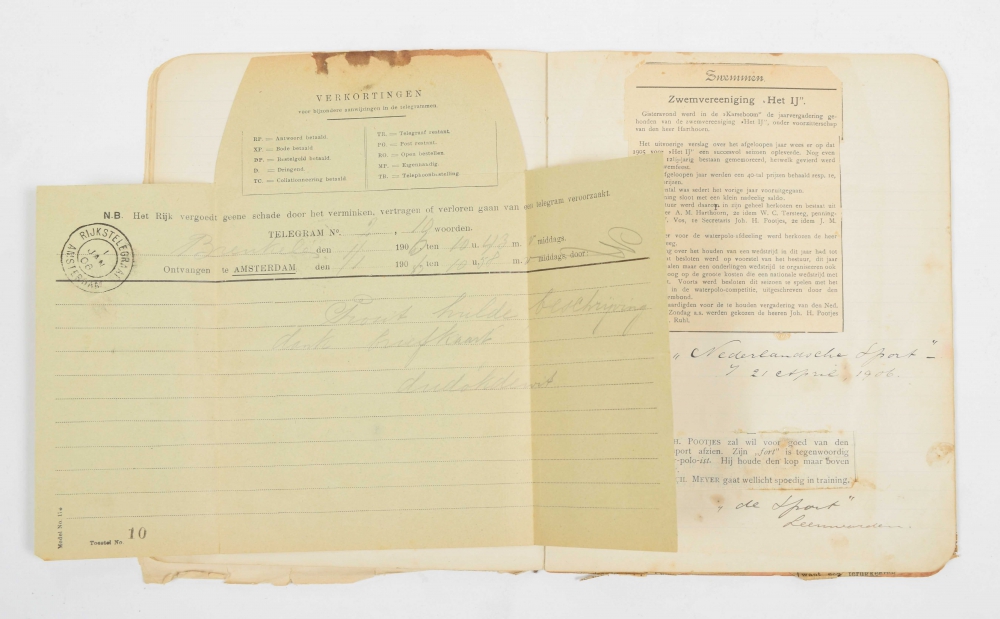 VERKORTINGEN
voor bijzondere aanwijzingen in de telegrammen.
RP. = Antwoord betaald.
XP. = Bode betaald
D. = Dringend.
TC. = Collationneering betaald
TR. = Telegraaf restant.
PG. = Post restant.
RO. = Open bestellen.
MP. = Eigenhandig.
N.B. Het Rijk vergoedt geene schade door het verminken, vertragen of verloren gaan van een telegram veroorzaakt.
TELEGRAM No. , 19 woorden.
den 1/1 1906 ten 10 u. 43 m. middags.
Ontvangen te AMSTERDAM den 1/1 1906 ten 10 u. 58 m. middags, door:
RIJKSTELEGRAAF
1
JAN
06
AMSTERDAM
Prosit hulde beschrijving
dank briefkaart
Model No. 11a
Toestel No. 10
Swemmen.
Zwemvereeniging „Het IJ".
Gisteravond werd in de «Karseboom» de jaarvergadering ge-
houden van de zwemvereeniging «Het IJ», onder voorzitterschap
van den heer Harthoorn.
Het uitvoerige verslag over het afgeloopen jaar wees er op dat
1905 voor «Het IJ» een succesvol seizoen opleverde. Nog even
jarig bestaan gememoreerd, hetwelk gevierd werd
afgeloopen jaar werden een 40-tal prijzen behaald resp. 1e,
prijzen.
tal was sedert het vorige jaar vooruitgegaan.
ing sloot met een klein nadeelig saldo.
tuur werd daarop in zijn geheel herkozen en bestaat uit
er A. M. Harthoorn, ze idem W. C. Tonneg, penning-
Vas, 1e Secretaris Joh. H. Pootjes, 2e idem J. M.
er voor de waterpolo-afdeeling werd herkozen de heer
eg.
er het houden van een wedstrijd in dit jaar bad tot
t besloten werd op voorstel van het bestuur, dit jaar
alen maar een onderlingen wedstrijd te organiseeren ook
oog op de groote kosten die een nationale wedstrijd met
t. Voorts werd besloten dit seizoen te spelen met het
in de waterpolo-competitie, uitgeschreven door den
embond.
aardigden voor de te houden vergadering van den Ned.
Zondag a.s. werden gekozen de heeren Joh. H. Pootjes
Ruhl.
„Nederlandsche Sport"
v/ 21 April 1906.
H. POOTJES zal wil voor goed van den
port afzien. Zijn „fort" is tegenwoordig
r-polo-ist. Hij houde den kop maar boven
H. MEYER gaat wellicht spoedig in training.
„de Sport"
Leeuwarden.